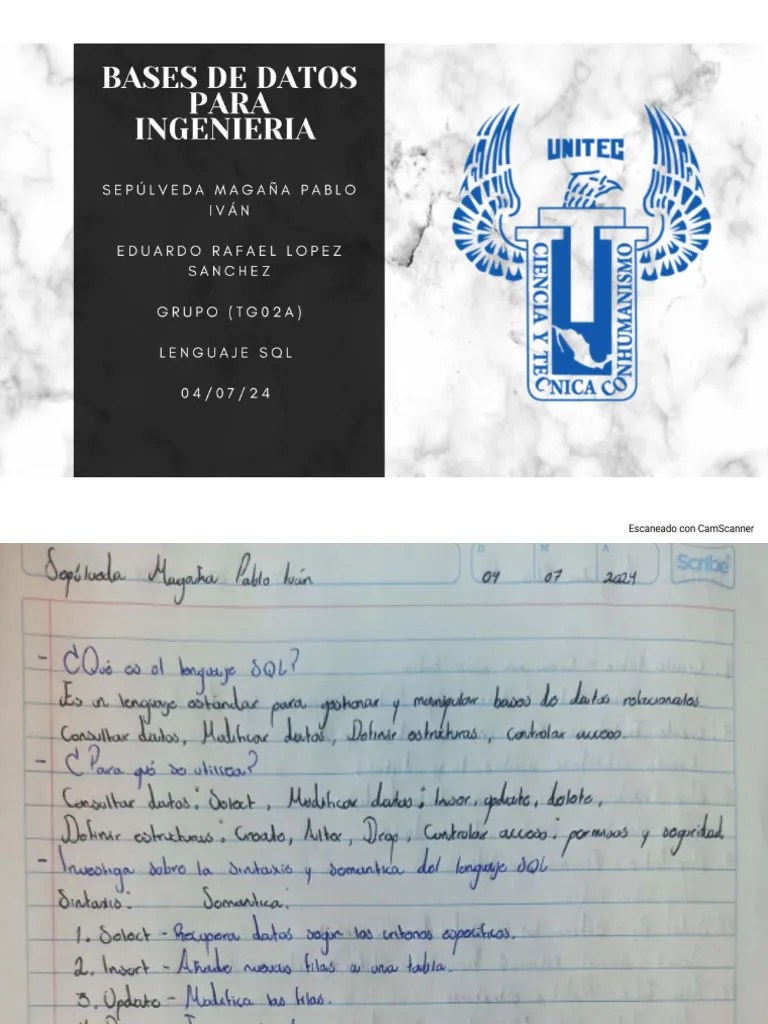 BASES DE DATOS
PARA
INGENIERIA
SEPÚLVEDA MAGAÑA PABLO
IVÁN
EDUARDO RAFAEL LOPEZ
SANCHEZ
GRUPO (TG02A)
LENGUAJE SQL
04/07/24
UNITEC
CIENCIA Y TECNICA CON HUMANISMO
Escaneado con CamScanner
Sepúlveda Magaña Pablo Iván
D M A
04 07 2024
Scribe
- ¿Qué es el lenguaje SQL?
Es un lenguaje estándar para gestionar y manipular bases de datos relacionales
Consultar datos, Modificar datos, Definir estructuras, controlar acceso.
- ¿Para qué se utiliza?
Consultar datos: Select, Modificar datos: Inser, update, delete,
Definir estructuras: Create, Alter, Drop, Controlar acceso: permisos y seguridad.
- Investiga sobre la sintaxis y semantica del lenguaje SQL
Sintaxis: Semantica:
1. Select - Recupera datos según los criterios especificos.
2. Insert - Añade nuevas filas a una tabla.
3. Update - Modifica las filas.